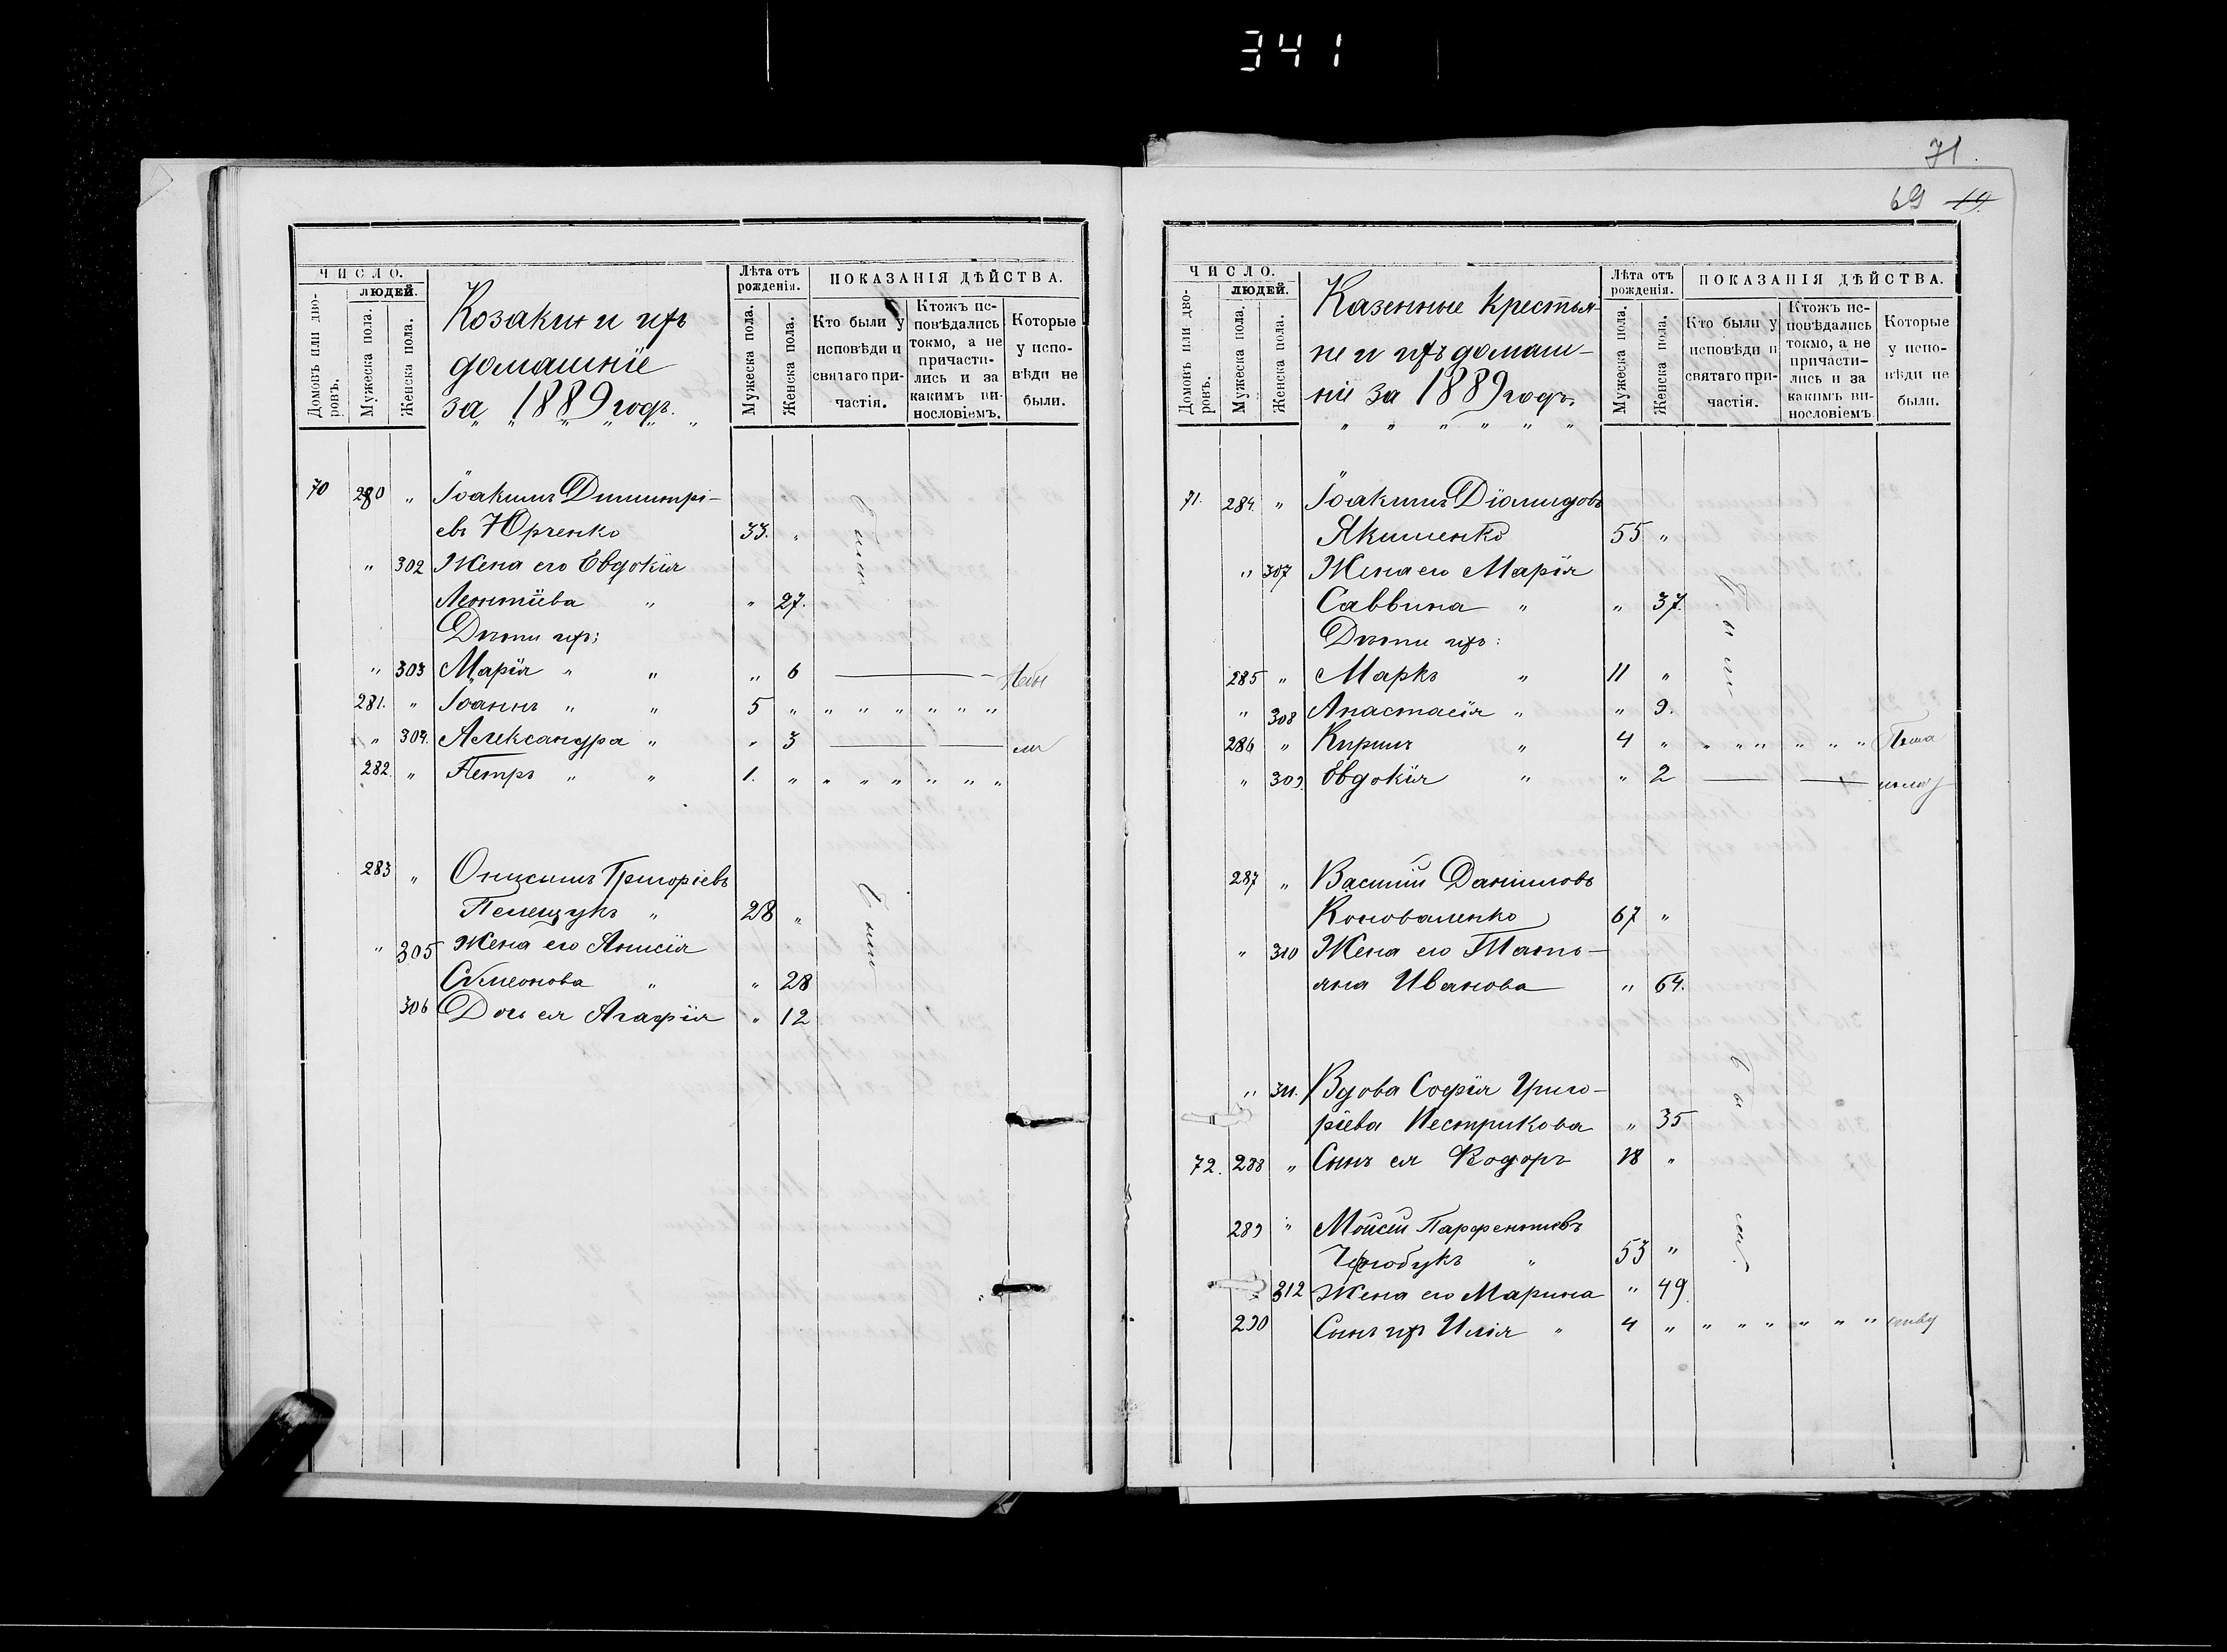 341
71.
69 19.
ЧИСЛО.
ЛЮДЕЙ.
Домовъ или дво-
ровъ.
Мужеска пола.
Женска пола.
Козаки и ихъ
домашніе
за 1889 годъ.
Лѣта отъ
рожденія.
Мужеска пола.
Женска пола.
ПОКАЗАНІЯ ДѢЙСТВА.
Кто были у
исповѣди и
святаго при-
частія.
Ктожъ ис-
повѣдались
токмо, а не
причасти-
лись и за
какимъ ви-
нословіемъ.
Которые
у испо-
вѣди не
были.
70 280 " Іоакимъ Димитрі-
евъ Юрченко 33. "
" 302 Жена его Евдокія
Леонтіева " " 27.
Дѣти ихъ:
" 303 Марія " " " 6
281. " Іоаннъ " " 5 " " " " " " " "
" 304. Александра " " 3
282. " Петръ " " 1. " " " " " " " "
283 " Онисимъ Григоріевъ
Пелещукъ " 28 "
" 305 Жена его Анисія
Симеонова " " 28
306 Дочь ея Агафія " 12
Были
Были
ЧИСЛО.
ЛЮДЕЙ.
Домовъ или дво-
ровъ.
Мужеска пола.
Женска пола.
Казенные крестья-
не и ихъ домаш-
ніе за 1889 годъ.
" " " " " "
Лѣта отъ
рожденія.
Мужеска пола.
Женска пола.
ПОКАЗАНІЯ ДѢЙСТВА.
Кто были у
исповѣди и
святаго при-
частія.
Ктожъ ис-
повѣдались
токмо, а не
причасти-
лись и за
какимъ ви-
нословіемъ.
Которые
у испо-
вѣди не
были.
71. 284. " Іоакимъ Діомидовъ
Якименко 55 "
" 307 Жена его Марія
Саввина " " 37.
Дѣти ихъ:
285 " Маркъ " 11 "
" 308 Анастасія " " 9.
286 " Кирилъ " 4 " " " " " " " "
" 309. Евдокія " " 2
287 " Василій Даніиловъ
Коноваленко 67 "
" 310 Жена его Татьт-
яна Иванова " 64.
" 311. Вдова Софія Григо-
ріева Нестрикова " 35
72. 288 " Сынъ ея Ѳодоръ 18 "
289 " Моисей Парфентіевъ
53 "
312 Жена его Марина " 49.
290 Сынъ ихъ Илія " 4 " " " " " " "
Были